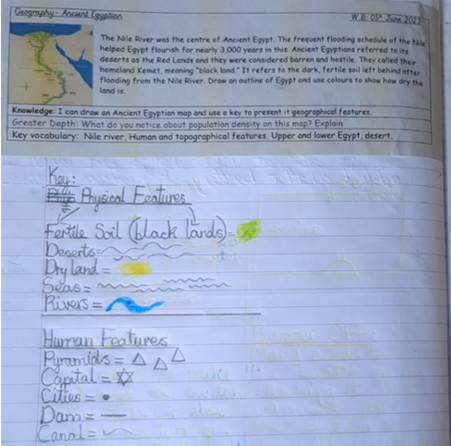 Geography: Ancient Egyptian
W.B. 05th June 2023
The Nile River was the centre of Ancient Egypt. The frequent flooding schedule of the Nile
helped Egypt flourish for nearly 3,000 years in this. Ancient Egyptians referred to its
deserts as the Red Lands and they were considered barren and hostile. They called their
homeland Kemet, meaning "black land." It refers to the dark, fertile soil left behind after
flooding from the Nile River. Draw an outline of Egypt and use colours to show how dry the
land is.
Knowledge: I can draw an Ancient Egyptian map and use a key to present it geographical features.
Greater Depth: What do you notice about population density on this map? Explain
Key vocabulary: Nile river, Human and topographical features, Upper and lower Egypt, desert.
Key:
Physical Features
Fertile Soil (black lands)=
Deserts=
Dry land =
Seas=
Rivers =
Human Features
Pyramids =
Capital =
Cities =
Dam =
Canal =